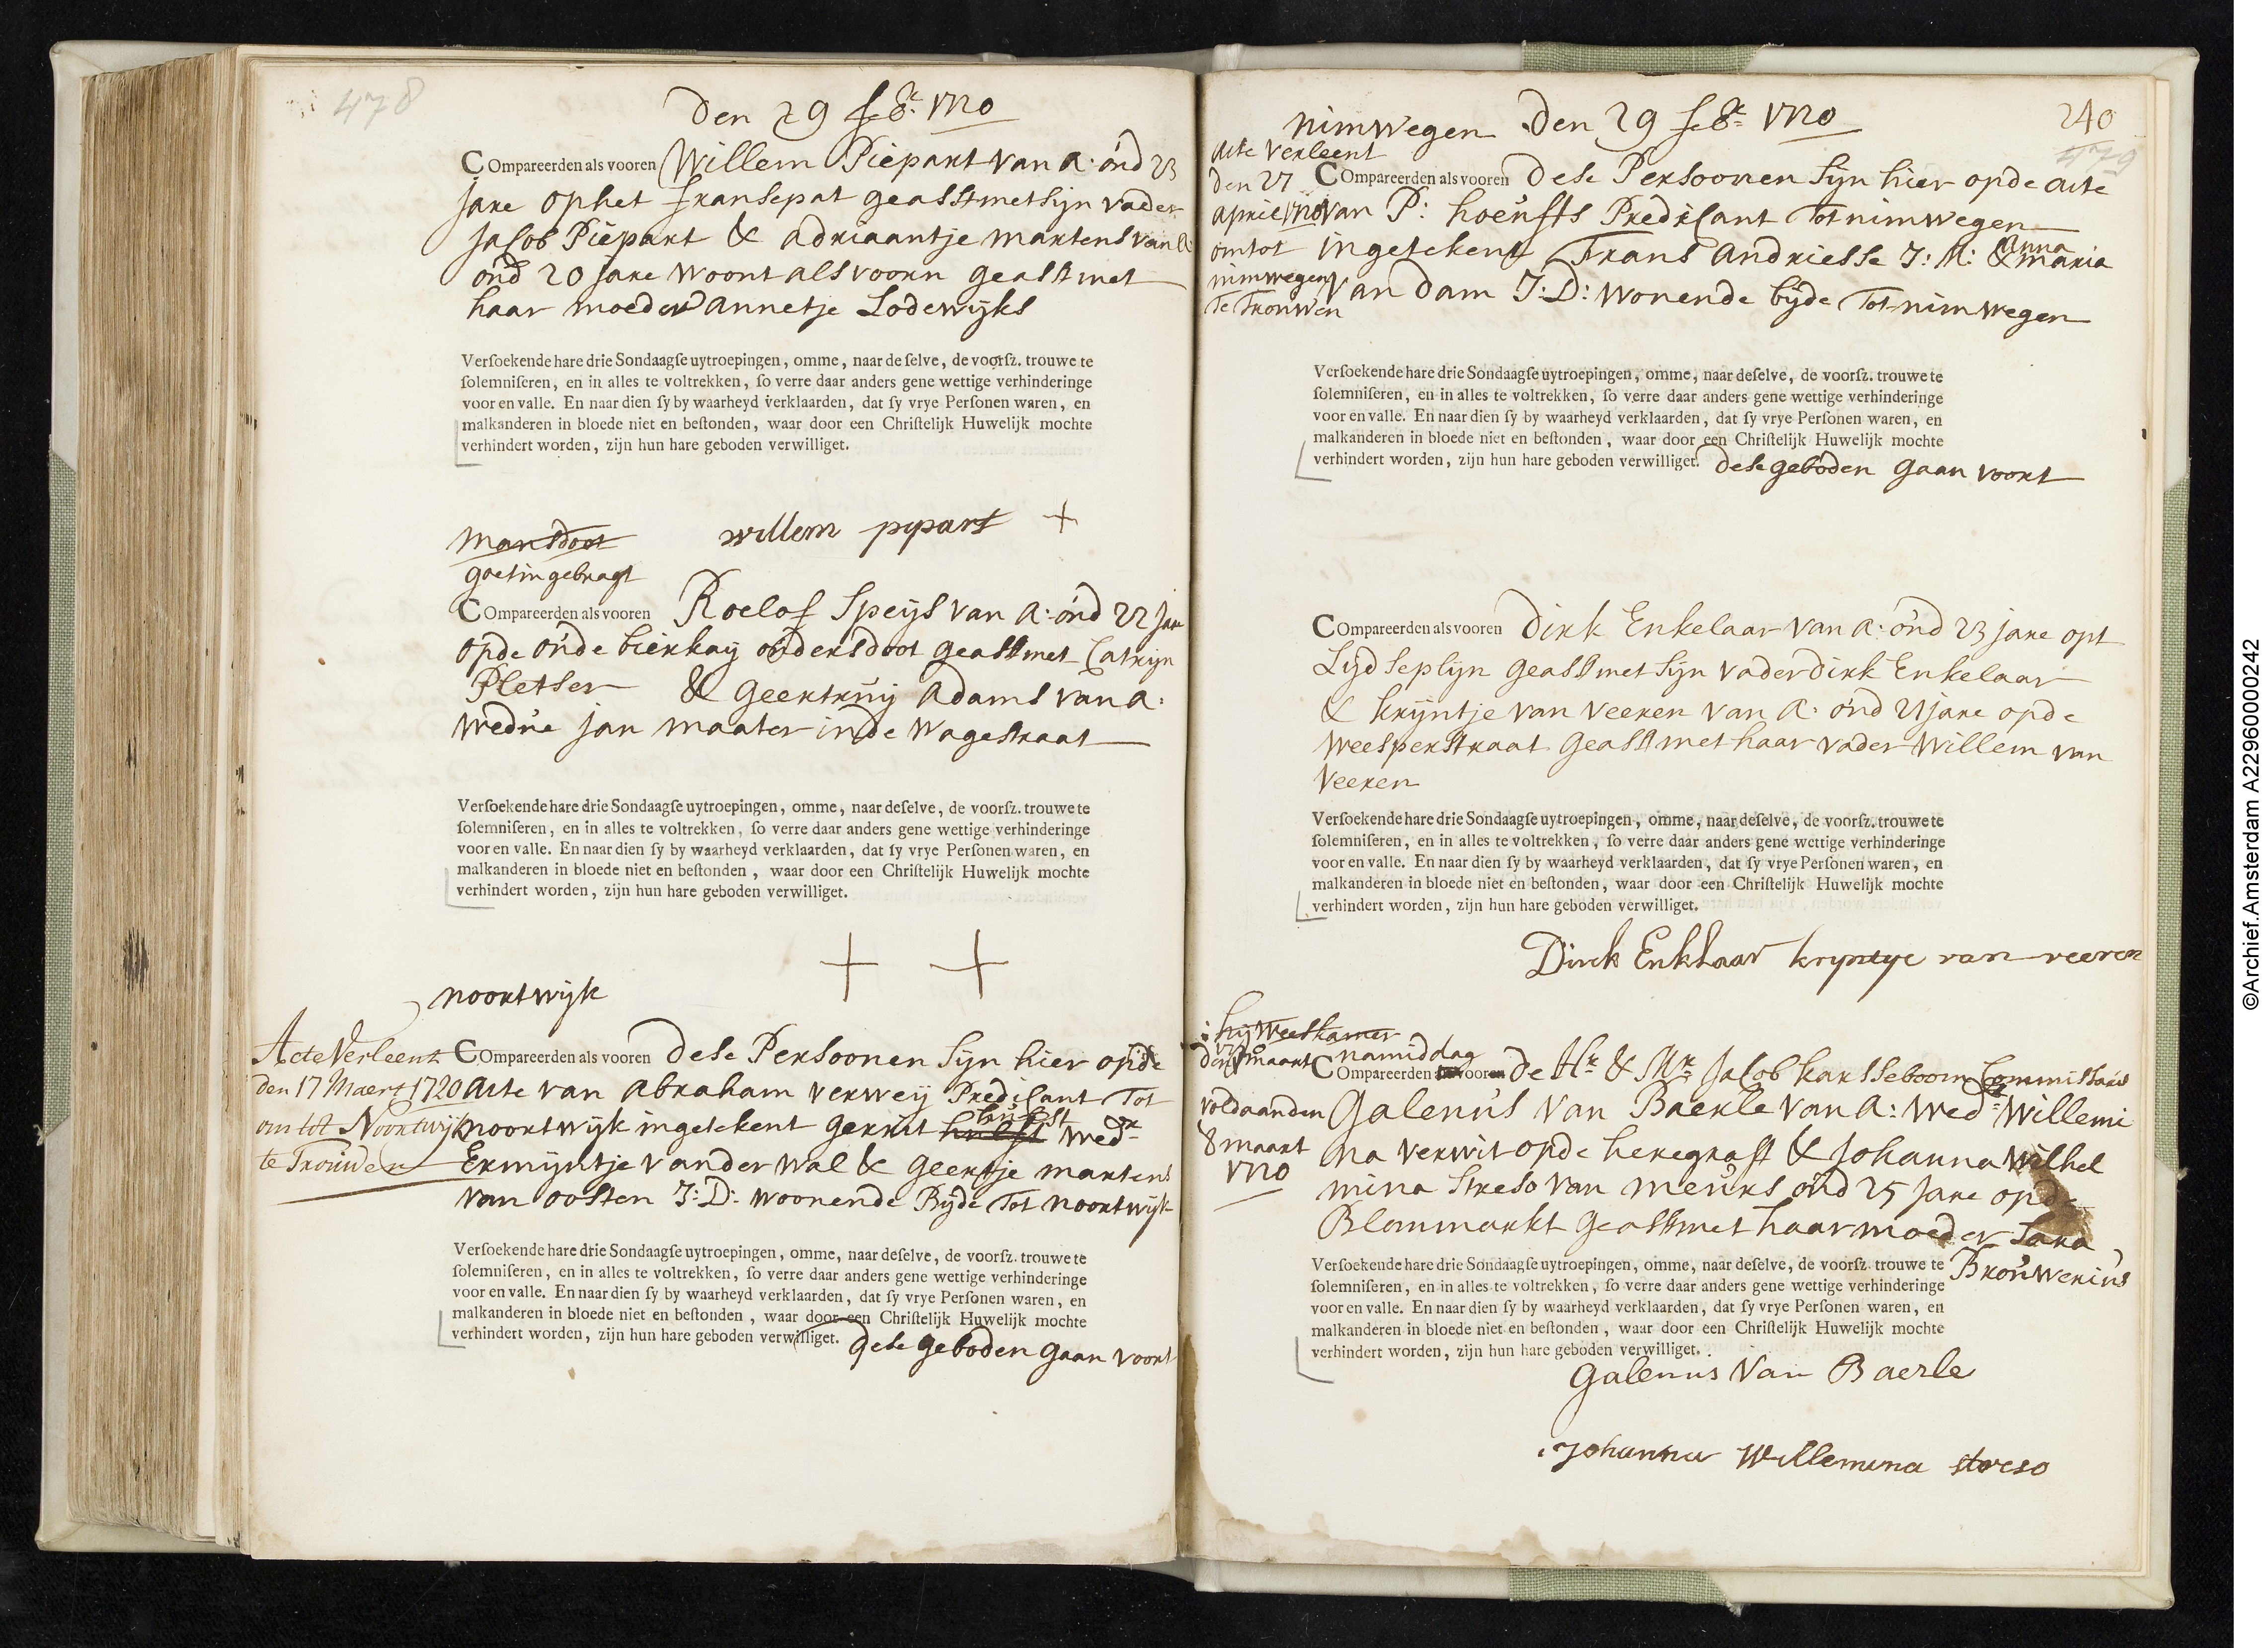 478
Den 29 feb: 1720
COmpareerden als vooren Willem Piepart van A: oud 23
jare op het fransepat geasst met sijn vader
Jacob Piepart & Adriaantje Martens van A:
oud 20 jare woont als voorn geasst met
haar moeder Annetje Lodewijks
Versoekende hare drie Sondaagse uytroepingen, omme, naar de selve, de voorsz. trouwe te
solemniseren, en in alles te voltrekken, so verre daar anders gene wettige verhinderinge
voor en valle. En naar dien sy by waarheyd verklaarden, dat sy vrye Personen waren, en
malkanderen in bloede niet en bestonden, waar door een Christelijk Huwelijk mochte
verhindert worden, zijn hun hare geboden verwilliget.
willem pypart +
Mansdoot
goet ingebragt
COmpareerden als vooren Roelof Speijs van A: oud 22 jare
op de oude bierkay ouders doot geasst met Catrijn
Pletser & Geertruij Adams van A:
wedue jan maater in de Wagestraat
Versoekende hare drie Sondaagse uytroepingen, omme, naar deselve, de voorsz. trouwe te
solemniseren, en in alles te voltrekken, so verre daar anders gene wettige verhinderinge
voor en valle. En naar dien sy by waarheyd verklaarden, dat sy vrye Personen waren, en
malkanderen in bloede niet en bestonden, waar door een Christelijk Huwelijk mochte
verhindert worden, zijn hun hare geboden verwilliget.
+ +
noortwijk
Acte Verleent
den 17 Maert 1720
om tot Noortwijk
te Trouwen
COmpareerden als vooren Dese Persoonen sijn hier op de
acte van Abraham Verweij Predicant tot
noortwijk ingetekent Gerrit wedr
Ermijntje van der Wal & Geertje Martens
van oosten J:D: woonende Bijde tot noortwijk
Versoekende hare drie Sondaagse uytroepingen, omme, naar deselve, de voorsz. trouwe te
solemniseren, en in alles te voltrekken, so verre daar anders gene wettige verhinderinge
voor en valle. En naar dien sy by waarheyd verklaarden, dat sy vrye Personen waren, en
malkanderen in bloede niet en bestonden, waar door een Christelijk Huwelijk mochte
verhindert worden, zijn hun hare geboden verwilliget. Dese geboden gaan voort
240
479
nimwegen Den 29 feb: 1720
acte verleent
den 27
april 1720
om tot
nimwegen
te Trouwen
COmpareerden als vooren Dese Persoonen sijn hier op de acte
van P: hoeufts Predicant tot nimwegen
ingetekent Frans Andriesse J:M: & Anna Maria
van Dam J:D: wonende bijde tot nimwegen
Versoekende hare drie Sondaagse uytroepingen, omme, naar deselve, de voorsz. trouwe te
solemniseren, en in alles te voltrekken, so verre daar anders gene wettige verhinderinge
voor en valle. En naar dien sy by waarheyd verklaarden, dat sy vrye Personen waren, en
malkanderen in bloede niet en bestonden, waar door een Christelijk Huwelijk mochte
verhindert worden, zijn hun hare geboden verwilliget. Dese geboden gaan voort
COmpareerden als vooren Dirk Enkelaar van A: oud 23 jare opt
Lijdseplijn geasst met sijn vader dirk Enkelaar
& krijntje van veeren van A: oud 21 jare op de
weesperstraat geasst met haar vader Willem van
Veeren
Versoekende hare drie Sondaagse uytroepingen, omme, naar deselve, de voorsz. trouwe te
solemniseren, en in alles te voltrekken, so verre daar anders gene wettige verhinderinge
voor en valle. En naar dien sy by waarheyd verklaarden, dat sy vrye Personen waren, en
malkanderen in bloede niet en bestonden, waar door een Christelijk Huwelijk mochte
verhindert worden, zijn hun hare geboden verwilliget.
Dirck Enklaar kryntye van veeren
hij Weeskamer
voldaan den
8 maart
1720
namiddag
Compareerden vooren de Hr & Mr Jacob karsseboom Commissaris
Galenus van Baerle van A: wedr Willemi
na verwit op de heregraft & Johanna Wilhel
mina Streso van meurs oud 25 jare op de
Blommarkt geasst met haar moeder Sara
Brouwerius
Versoekende hare drie Sondaagse uytroepingen, omme, naar deselve, de voorsz. trouwe te
solemniseren, en in alles te voltrekken, so verre daar anders gene wettige verhinderinge
voor en valle. En naar dien sy by waarheyd verklaarden, dat sy vrye Personen waren, en
malkanderen in bloede niet en bestonden, waar door een Christelijk Huwelijk mochte
verhindert worden, zijn hun hare geboden verwilliget.
Galenus Van Baerle
Johanna Willemina streso
©Archief.Amsterdam A22960000242